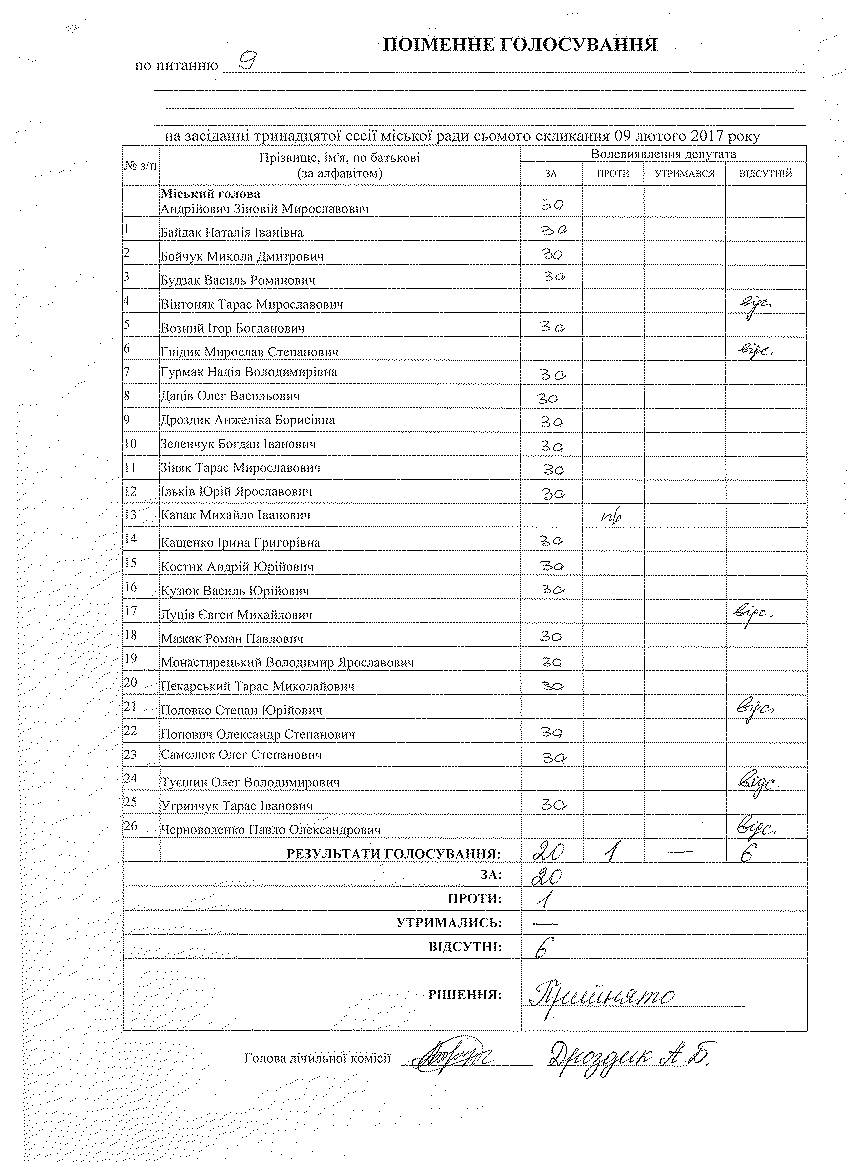 ПОІМЕННЕ ГОЛОСУВАННЯ
по питанню 9
на засіданні тринадцятої сесії міської ради сьомого скликання 09 лютого 2017 року
№ з/п Прізвище, ім'я, по батькові (за алфавітом) Волевиявлення депутата
ЗА ПРОТИ УТРИМАВСЯ ВІДСУТНІЙ
Міський голова
Андрійович Зіновій Мирославович за
1 Байдак Наталія Іванівна за
2 Бойчук Микола Дмитрович за
3 Будзак Василь Романович за
4 Вінтоняк Тарас Мирославович відс.
5 Возний Ігор Богданович за
6 Гнідик Мирослав Степанович відс.
7 Гурмак Надія Володимирівна за
8 Даців Олег Васильович за
9 Дроздик Анжеліка Борисівна за
10 Зеленчук Богдан Іванович за
11 Зіняк Тарас Мирославович за
12 Ільків Юрій Ярославович за
13 Капак Михайло Іванович пр
14 Кащенко Ірина Григорівна за
15 Костик Андрій Юрійович за
16 Кузюк Василь Юрійович за
17 Луців Євген Михайлович відс.
18 Мажак Роман Павлович за
19 Монастирецький Володимир Ярославович за
20 Пекарський Тарас Миколайович за
21 Половко Степан Юрійович відс.
22 Попович Олександр Степанович за
23 Самолюк Олег Степанович за
24 Туєшин Олег Володимирович відс
25 Угринчук Тарас Іванович за
26 Черноволенко Павло Олександрович відс.
РЕЗУЛЬТАТИ ГОЛОСУВАННЯ: 20 1 — 6
ЗА: 20
ПРОТИ: 1
УТРИМАЛИСЬ: —
ВІДСУТНІ: 6
РІШЕННЯ: Прийнято
Голова лічильної комісії Дроздик А Б.